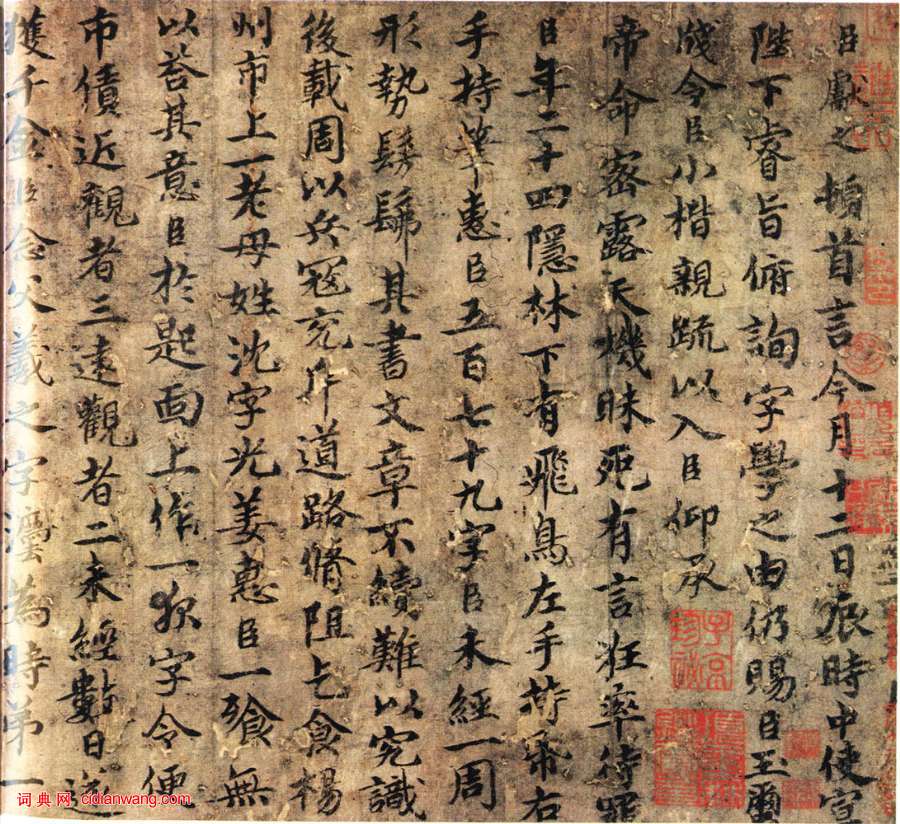 臣獻之頓首言今月十二日辰時中使宣
陛下睿旨俯詢字學之由仍賜臣玉爾
牋令臣小楷親疏以入臣仰承
帝命密露天機昧死有言狂率待罪
臣年二十四隱林下有飛鳥左手持帋右
手持筆惠臣五百七十九字臣未經一周
形勢髣髴其書文章不續難以究識
後載周以兵寇充斥道路脩阻乞食楊
州市上一老母姓沈字光姜惠臣一飡無
以荅其意臣於匙面上作一夜字令便
市債近觀者三遠觀者二未經數日遂
獲千金臣念父羲之字灋為時弟一
词典网 cidianwang.com